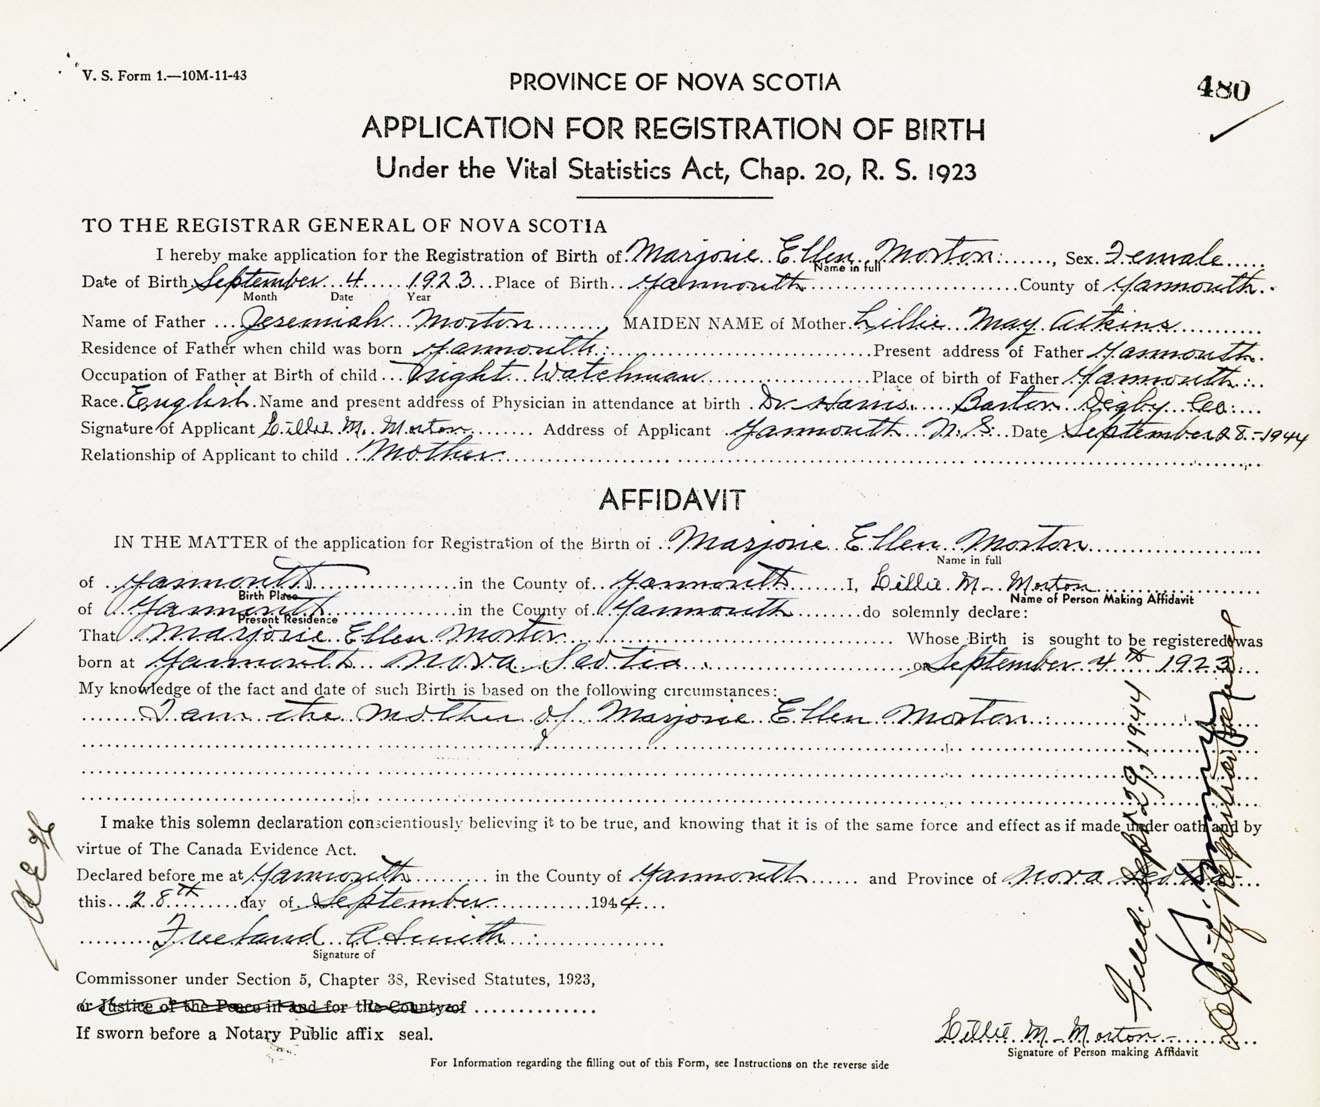 V. S. Form 1.—10M-11-43
PROVINCE OF NOVA SCOTIA
480
APPLICATION FOR REGISTRATION OF BIRTH
Under the Vital Statistics Act, Chap. 20, R. S. 1923
TO THE REGISTRAR GENERAL OF NOVA SCOTIA
I hereby make application for the Registration of Birth of Marjorie Ellen Morton, Sex Female
Name in full
Date of Birth September 4 1923 Place of Birth Yarmouth County of Yarmouth
Month Date Year
Name of Father Jeremiah Morton, MAIDEN NAME of Mother Lillie May Atkins
Residence of Father when child was born Yarmouth Present address of Father Yarmouth
Occupation of Father at Birth of child Night Watchman Place of birth of Father Yarmouth
Race English Name and present address of Physician in attendance at birth Dr Barton Digby Co
Signature of Applicant Lillie M. Morton Address of Applicant Yarmouth N.S. Date September 28 - 1944
Relationship of Applicant to child Mother
AFFIDAVIT
IN THE MATTER of the application for Registration of the Birth of Marjorie Ellen Morton
Name in full
of Yarmouth in the County of Yarmouth I, Lillie M. Morton
Birth Place Name of Person Making Affidavit
of Yarmouth in the County of Yarmouth do solemnly declare:
Present Residence
That Marjorie Ellen Morton Whose Birth is sought to be registered was
born at Yarmouth Nova Scotia on September 4th 1923
My knowledge of the fact and date of such Birth is based on the following circumstances:
I am the mother of Marjorie Ellen Morton
I make this solemn declaration conscientiously believing it to be true, and knowing that it is of the same force and effect as if made under oath and by
virtue of The Canada Evidence Act.
Declared before me at Yarmouth in the County of Yarmouth and Province of Nova Scotia
this 28th day of September 1944
Freeland A Smith
Signature of
Commissoner under Section 5, Chapter 38, Revised Statutes, 1923,
or Justice of the Peace in and for the County of
If sworn before a Notary Public affix seal.
Lillie M. Morton
Signature of Person making Affidavit
For Information regarding the filling out of this Form, see Instructions on the reverse side
Filed Sept 29, 1944
Deputy Registrar General